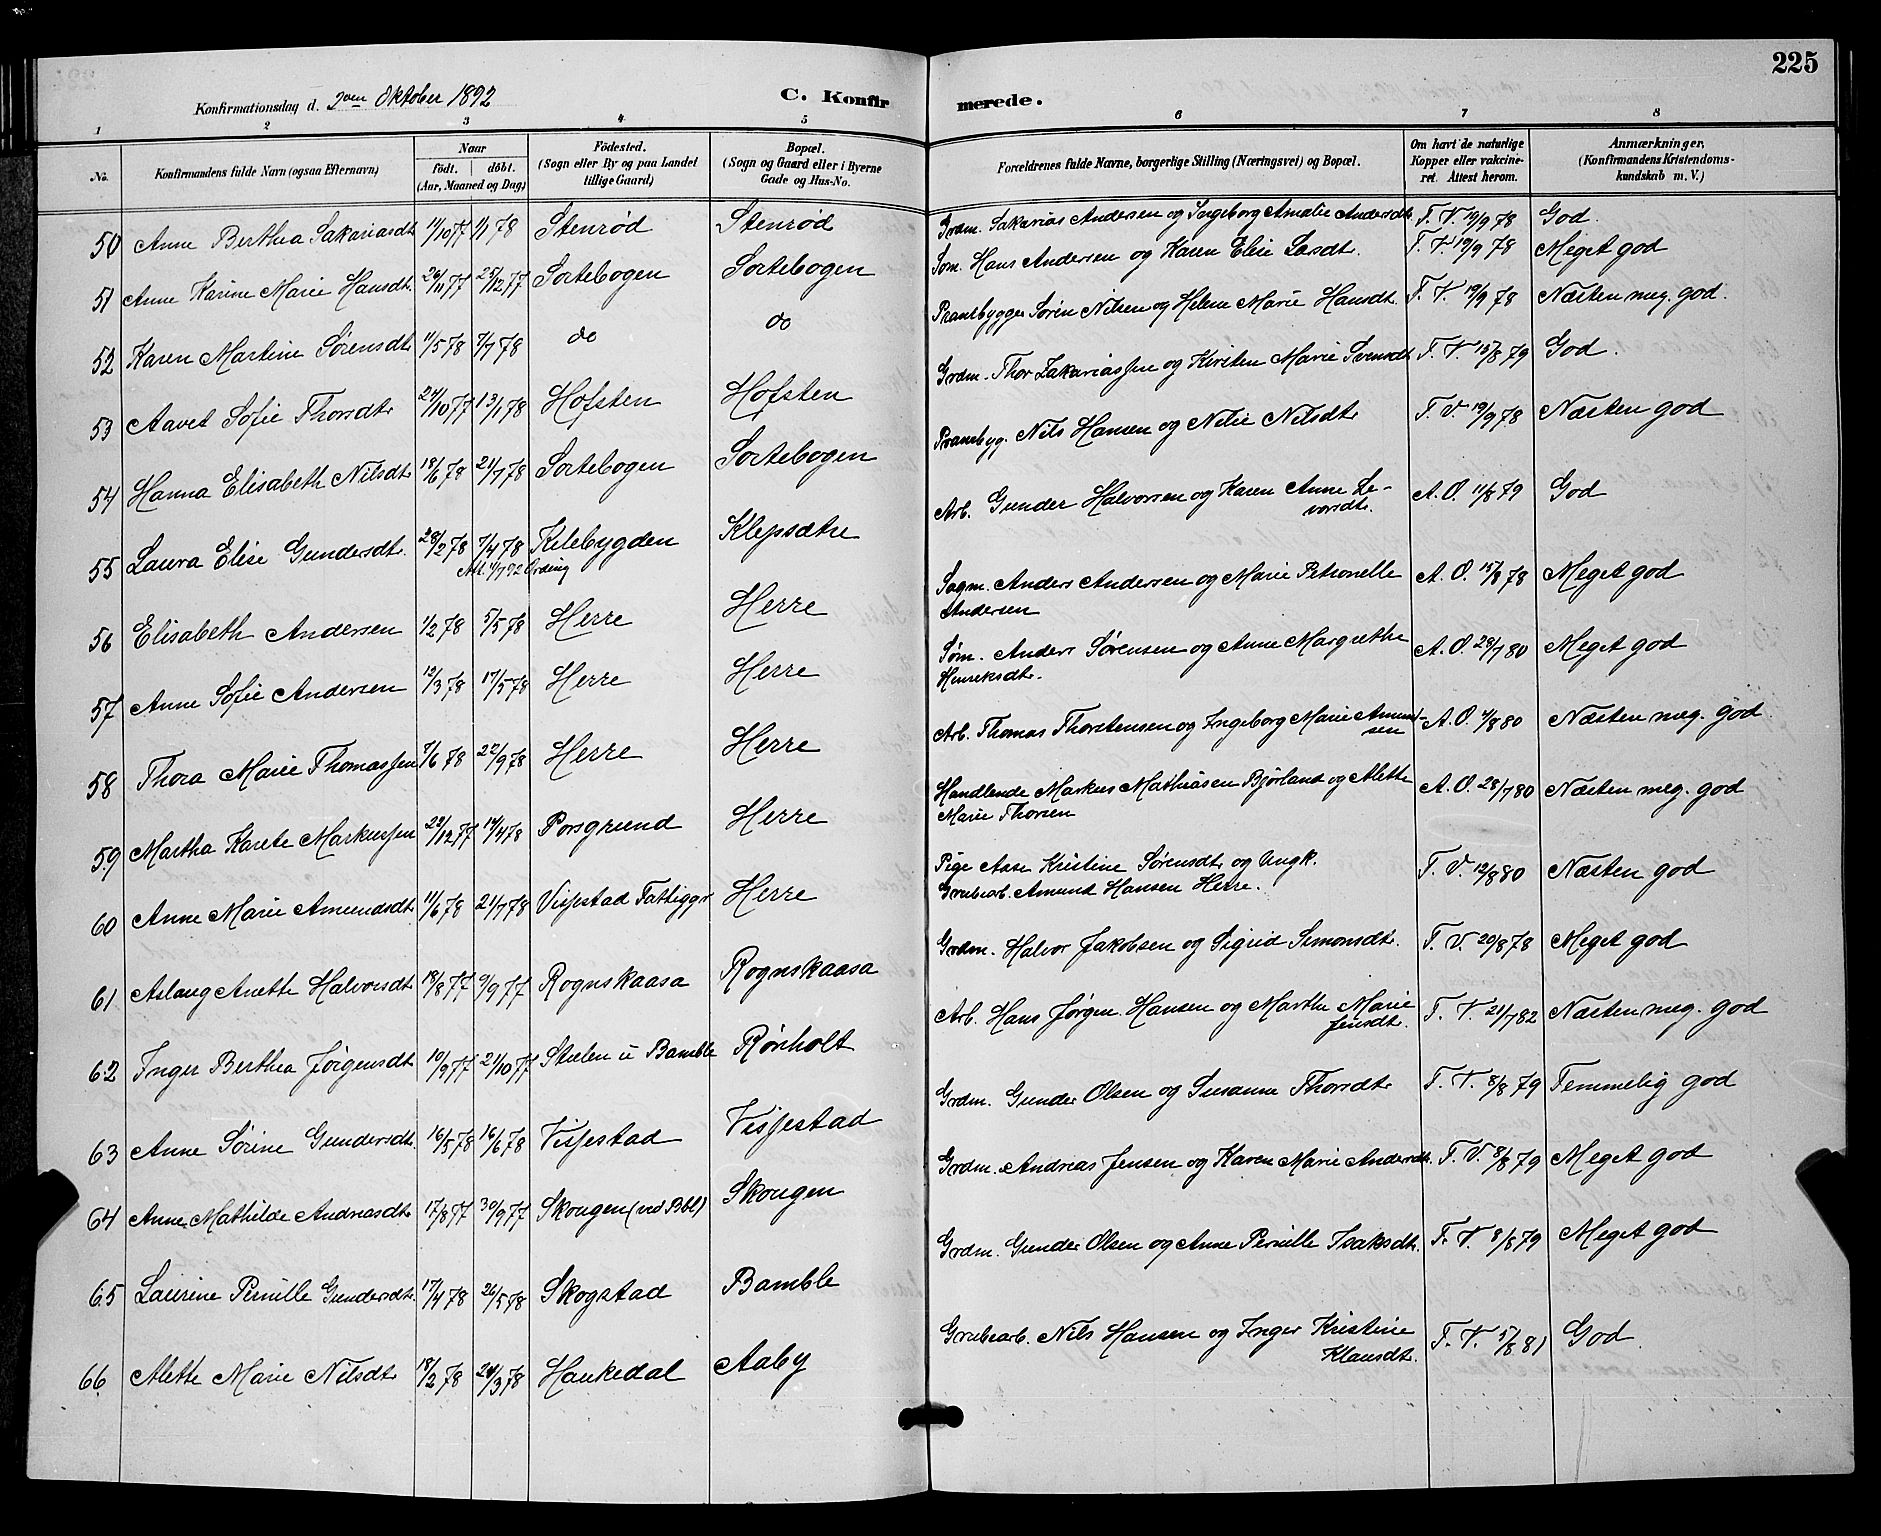 225
Konfirmationsdag d. 2den Oktober 1892 C. Konfirmerede.
1 2 3 4 5 6 7 8
No. Konfirmandens fulde Navn (ogsaa Efternavn) Naar født. døbt. (Aar, Maaned og Dag) Fødested. (Sogn eller By og paa Landet tillige Gaard) Bopæl. (Sogn og Gaard eller i Byerne Gade og Hus-No. Forældrenes fulde Navne, borgerlige Stilling (Næringsvei) og Bopæl. Om havt de naturlige Kopper eller vakcineret. Attest herom. Anmærkninger, (Konfirmandens Kristendomskundskab m. V.)
50 Anne Berthea Sakariasdt. 11/10 77 1/1 78 Stenrød Stenrød Grdm. Sakarias Andersen og Ingeborg Amalie Andersdt. F. V. 19/9 78 God.
51 Anne Karine Marie Hansdt. 26/11 77 25/12 77 Sortebogen Sortebogen Søm. Hans Andersen og Karen Elise Larsdt. F. V. 19/9 78 Meget god
52 Karen Martine Sørensdt. 11/5 78 7/7 78 do do Prambygger Søren Nilsen og Helene Marie Hansdt. F. V. 19/9 78 Næsten meg. god.
53 Aavet Sofie Thorsdt. 24/10 77 13/1 78 Hofsten Hofsten Grdm. Thor Zakariassen og Kirsten Marie Svensdt. F. V. 15/8 79 God.
54 Hanna Elisabeth Nilsdt. 18/6 78 21/7 78 Sortebogen Sortebogen Prambyg. Nils Hansen og Nilie Nilsdt. F. V. 19/9 78 Næsten god
55 Laura Elise Gundersdt. 28/2 78 7/4 78 Kilebygden Klepsætre Arb. Gunder Halvorsen og Karen Anne Levorsdt. A. O. 11/8 79 God
56 Elisabeth Andersen 1/2 78 5/5 78 Herre Herre Sagm. Anders Andersen og Marie Petronelle Andersen A. O. 15/8 78 Meget god
57 Anne Sofie Andersen 12/3 78 17/5 78 Herre Herre Søm. Anders Sørensen og Anne Margrethe Henriksdt. A. O. 28/7 80 Meget god
58 Thora Marie Thomassen 7/6 78 22/9 78 Herre Herre Arb. Thomas Thorstensen og Ingeborg Marie Amundsen A. O. 4/8 80 Næsten meg. god
59 Martha Karete Markussen 22/12 77 14/4 78 Porsgrund Herre Handlende Markus Mathiasen Bjørland og Alette Marie Thorsen A. O. 28/7 80 Næsten meg. god
60 Anne Marie Amundsdt. 11/6 78 21/7 78 Vissestad Fattiggr Herre Pige Aase Kristine Sørensdt. og Ungk. Grubearb. Amund Hansen Herre. F. V. 12/8 80 Næsten god
61 Aslaug Anette Halvorsdt. 18/8 77 9/9 77 Rognskaasa Rognskaasa Grdm. Halvor Jakobsen og Sigrid Simonsdt. F. V. 20/8 78 Meget god
62 Inger Berthea Jørgensdt. 10/9 77 21/10 77 Stulen u Bamble Rønholt Arb. Hans Jørgen Hansen og Marthe Marie Jensdt. F. V. 21/7 82 Næsten meg. god
63 Anne Sørine Gundersdt. 16/5 78 16/6 78 Vissestad Vissestad Grdm. Gunder Olsen og Susanne Thorsdt. F. V. 8/8 79 Temmelig god
64 Anne Mathilde Andreasdt. 17/8 77 30/9 77 Skougen (ved Bbl) Skougen Grdm. Andreas Jensen og Karen Marie Andersdt. F. V. 8/8 79 Meget god
65 Laurine Pernille Gundersdt. 17/4 78 26/5 78 Skogstad Bamble Grdm. Gunder Olsen og Anne Pernille Isaksdt. F. V. 8/8 79 Meget god
66 Alette Marie Nilsdt. 18/2 78 24/3 78 Haukedal Aaby Grubearb. Nils Hansen og Inger Kristine Klausdt. F. V. 5/8 81 God